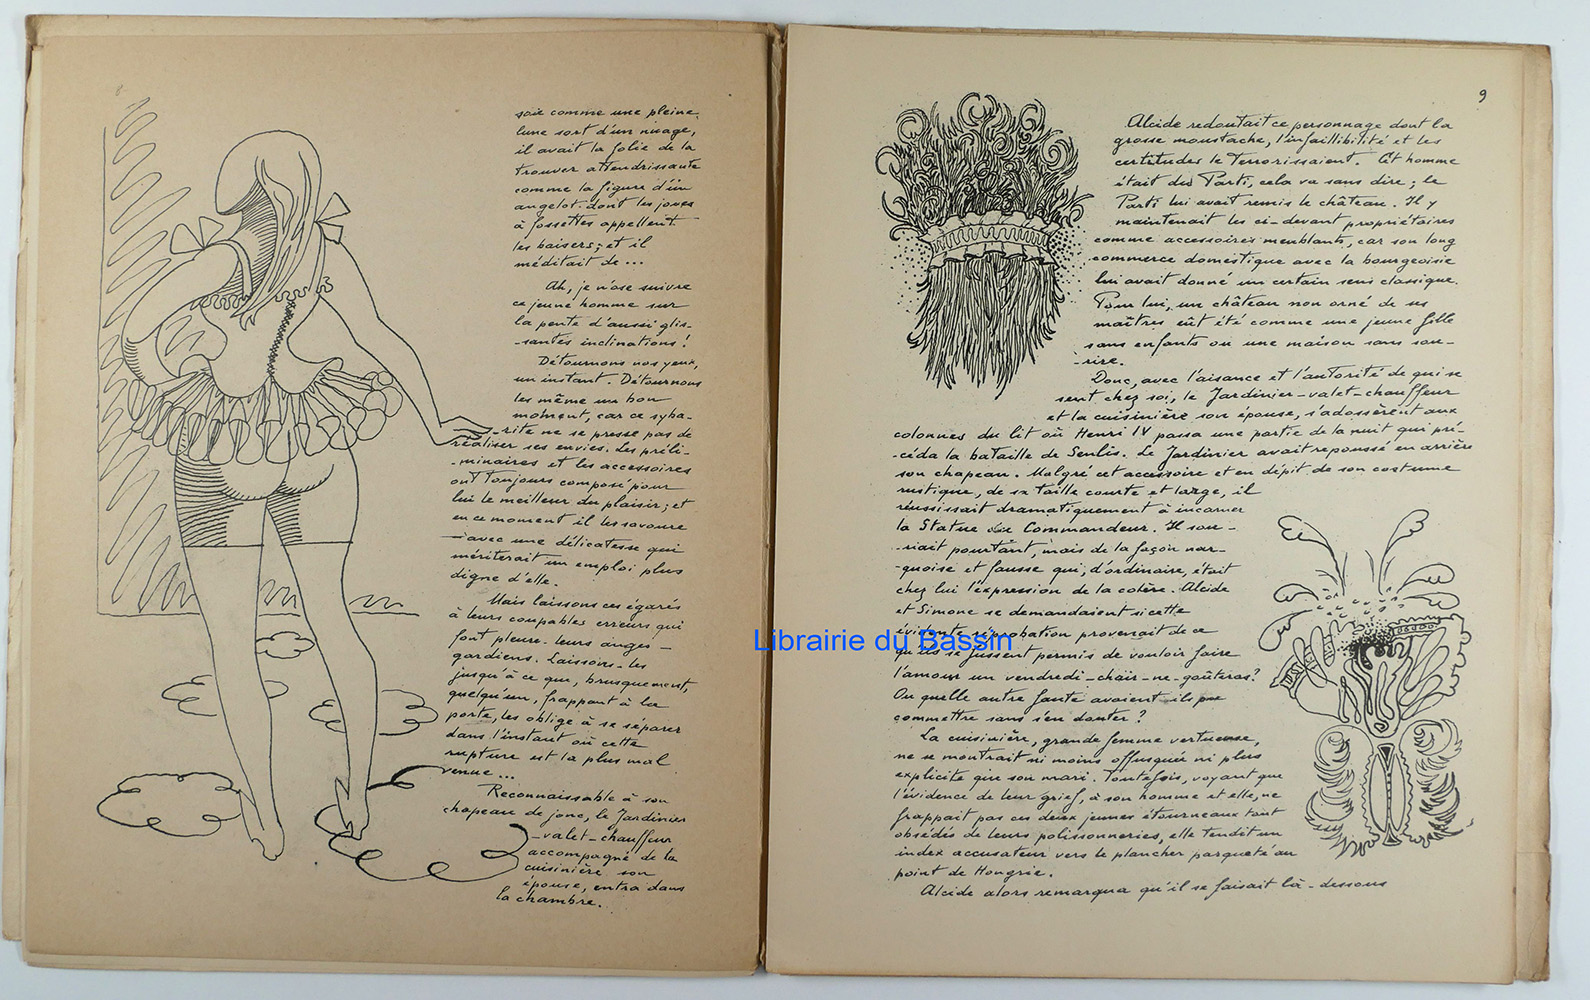 8
soie comme une pleine
lune sort d'un nuage,
il avait la folie de la
trouver attendrissante
comme la figure d'un
angelot dont les joues
à fossettes appellent
les baisers; et il
méditait de...
Ah, je n'ose suivre
ce jeune homme sur
la pente d'aussi glis-
-santes inclinations!
Détournons nos yeux,
un instant. Détournons
les même un bon
moment, car ce syba-
-rite ne se presse pas de
réaliser ses envies. Les préli-
-minaires et les accessoires
ont toujours composé pour
lui le meilleur du plaisir; et
en ce moment il les savoure
avec une délicatesse qui
mériterait un emploi plus
digne d'elle.
Mais laissons ces égarés
à leurs coupables erreurs qui
font pleurer leurs anges-
gardiens. Laissons-les
jusqu'à ce que, brusquement,
quelqu'un, frappant à la
porte, les oblige à se séparer
dans l'instant où cette
rupture est la plus mal
venue...
Reconnaissable à son
chapeau de jonc, le Jardinier
-valet-chauffeur
accompagné de la
cuisinière son
épouse, entra dans
la chambre.
9
Alcide redoutait ce personnage dont la
grosse moustache, l'infaillibilité et les
certitudes le terrorissaient. Cet homme
était du Parti, cela va sans dire; le
Parti lui avait remis le château. Il y
maintenait les ci-devant propriétaires
comme accessoires meublants, car son long
commerce domestique avec la bourgeoisie
lui avait donné un certain sens classique.
Pour lui, un château non orné de ses
maîtres eût été comme une jeune fille
sans enfants ou une maison sans sou-
-rire.
Donc, avec l'aisance et l'autorité de qui se
sent chez soi, le Jardinier-valet-chauffeur
et la cuisinière son épouse, s'adossèrent aux
colonnes du lit où Henri IV passa une partie de la nuit qui pré-
-céda la bataille de Senlis. Le Jardinier avait repoussé en arrière
son chapeau. Malgré cet accessoire et en dépit de son costume
rustique, de sa taille courte et large, il
réussissait dramatiquement à incarner
la Statue du Commandeur. Il sou-
-riait pourtant, mais de la façon nar-
-quoise et fausse qui, d'ordinaire, était
chez lui l'expression de la colère. Alcide
et Simone se demandaient si cette
évidente réprobation provenait de ce
qu'ils se fussent permis de vouloir faire
l'amour un vendredi-chair-ne-goûteras?
Ou quelle autre faute avaient-ils pu
commettre sans s'en douter?
La cuisinière, grande femme vertueuse,
ne se montrait ni moins offusquée ni plus
explicite que son mari. Toutefois, voyant que
l'évidence de leur grief, à son homme et elle, ne
frappait pas ces deux jeunes étourneaux tout
obsédés de leurs polissonneries, elle tendit un
index accusateur vers le plancher parqueté au
point de Hongrie.
Alcide alors remarqua qu'il se faisait là-dessous
Librairie du Bassin